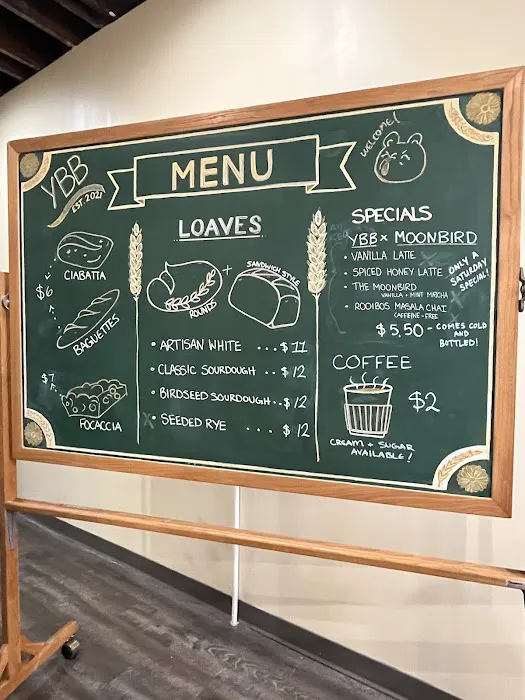 YBB
EST. 2021
WELCOME!
MENU
CIABATTA
$6
BAGUETTES
$7
FOCACCIA
LOAVES
ROUNDS
+
SANDWICH STYLE
• ARTISAN WHITE ... $11
• CLASSIC SOURDOUGH .. $12
• BIRDSEED SOURDOUGH .. $12
X SEEDED RYE ... $12
SPECIALS
YBB x MOONBIRD
• VANILLA LATTE
• SPICED HONEY LATTE
• THE MOONBIRD
VANILLA + MINT MATCHA
• ROOIBOS MASALA CHAI
CAFFEINE-FREE
ONLY A
SATURDAY
SPECIAL!
$5.50 - COMES COLD
AND
BOTTLED!
COFFEE
$2
CREAM + SUGAR
AVAILABLE!